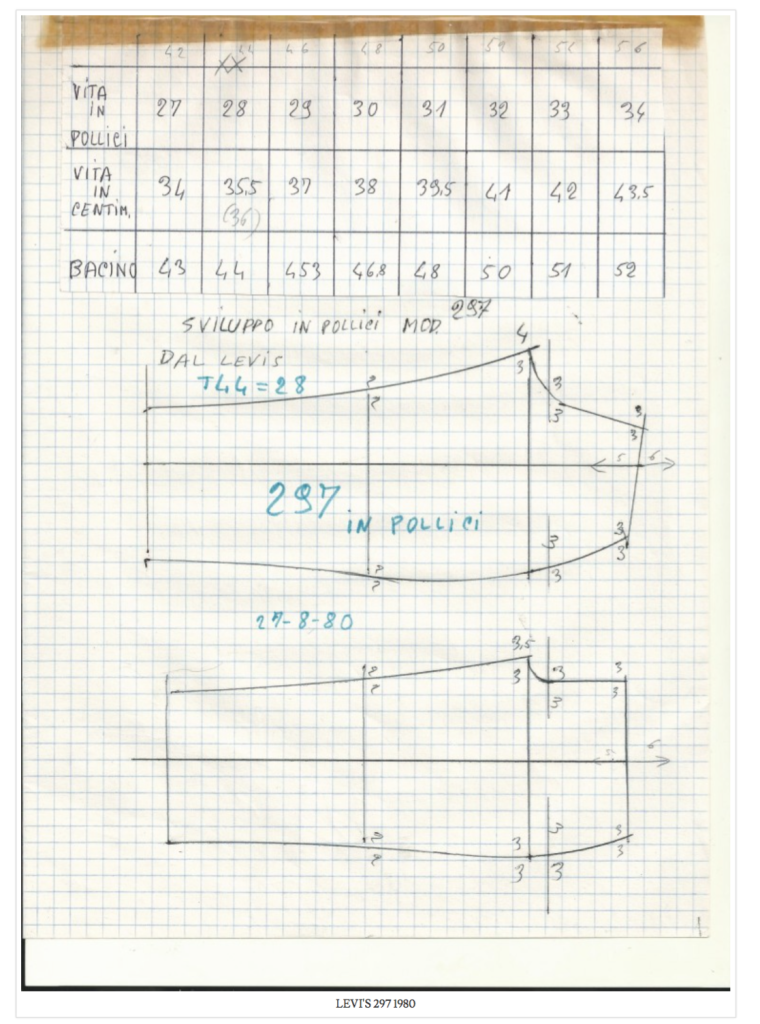 42 44 46 48 50 52 54 56
XX
VITA IN POLLICI 27 28 29 30 31 32 33 34
VITA IN CENTIM. 34 35,5 37 38 39,5 41 42 43,5
(36)
BACINO 43 44 453 46,8 48 50 51 52
SVILUPPO IN POLLICI MOD. 297
DAL LEVIS
T44=28
4
3
3
3
2
2
3
3
5 6
297 IN POLLICI
3
3
3
3
2
2
27-8-80
3,5
3
3
3
2
2
3
3
6
3
3
3
3
2
2
3
3
1
LEVI'S 297 1980